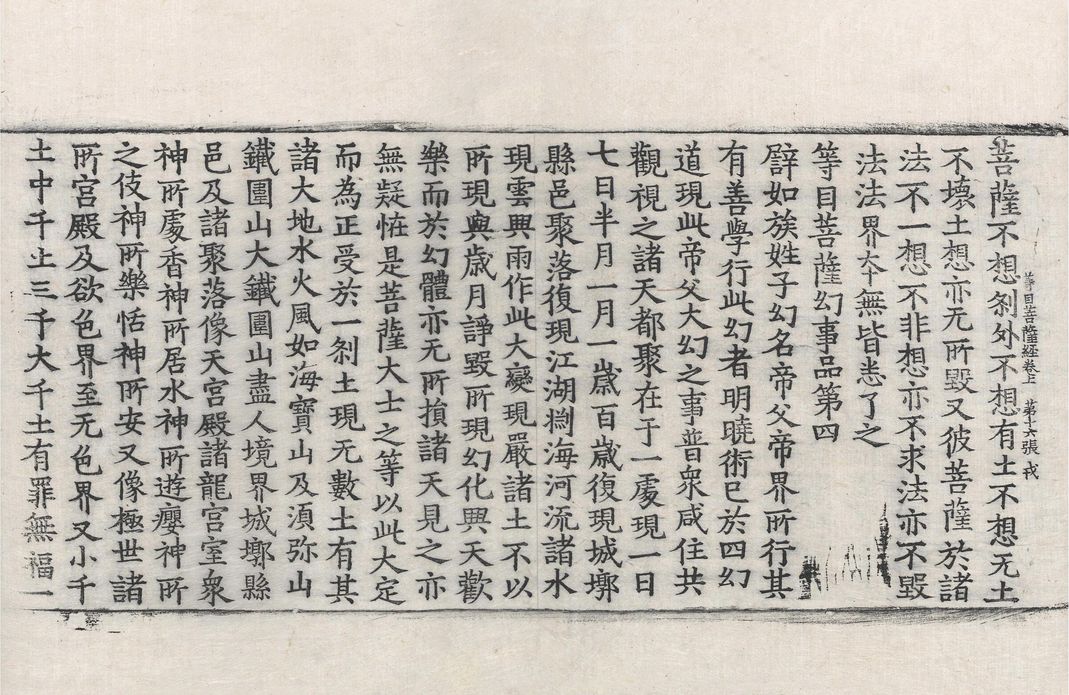 等目菩薩經卷上 第十六張 戎
菩薩不想刹外不想有土不想无土
不壞土想亦无所毀又彼菩薩於諸
法不一想不非想亦不求法亦不毀
法法界夲無皆悉了之
等目菩薩幻事品第四
辟如族姓子幻名帝父帝界所行其
有善學行此幻者明曉術已於四幻
道現此帝父大幻之事普衆咸住共
觀視之諸天都聚在于一處現一日
七日半月一月一歲百歲復現城墎
縣邑聚落復現江湖㵎海河流諸水
現雲興雨作此大變現嚴諸土不以
所現與歲月諍毀所現幻化興天歡
樂而於幻體亦无所損諸天見之亦
無疑恠是菩薩大士之等以此大定
而為正受於一刹土現无數土有其
諸大地水火風如海寶山及湏弥山
鐵圍山大鐵圍山盡人境界城墎縣
邑及諸聚落像天宮殿諸龍宮室衆
神所處香神所居水神所遊癭神所
之伎神所樂恬神所安又像極世諸
所宮殿及欲色界至无色界又小千
土中千土三千大千土有罪無福一